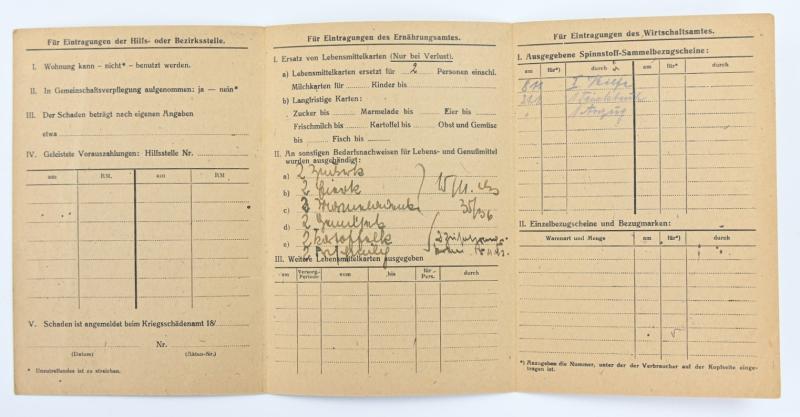 Für Eintragungen der Hilfs- oder Bezirksstelle.
I. Wohnung kann - nicht* - benutzt werden.
II. In Gemeinschaftsverpflegung aufgenommen: ja — nein*
III. Der Schaden beträgt nach eigenen Angaben
etwa
IV. Geleistete Vorauszahlungen: Hilfsstelle Nr.
am RM. am RM
V. Schaden ist angemeldet beim Kriegsschädenamt 18/
Nr.
(Datum) (Akten-Nr.)
* Unzutreffendes ist zu streichen.
Für Eintragungen des Ernährungsamtes.
I. Ersatz von Lebensmittelkarten (Nur bei Verlust).
a) Lebensmittelkarten ersetzt für 2 Personen einschl.
Milchkarten für Kinder bis
b) Langfristige Karten:
Zucker bis Marmelade bis Eier bis
Frischmilch bis Kartoffel bis Obst und Gemüse
bis Fisch bis
II. An sonstigen Bedarfsnachweisen für Lebens- und Genußmittel
wurden ausgehändigt:
a) 2
b) 2
c)
d) 2
e) 2
2
III. Weitere Lebensmittelkarten ausgegeben
am Versorg.- Periode vom bis für Pers. durch
Für Eintragungen des Wirtschaftsamtes.
I. Ausgegebene Spinnstoff-Sammelbezugscheine:
am für*) durch am für* durch
II. Einzelbezugscheine und Bezugmarken:
Warenart und Menge am für*) durch
*) Anzugeben die Nummer, unter der der Verbraucher auf der Kopfseite einge-
tragen ist.